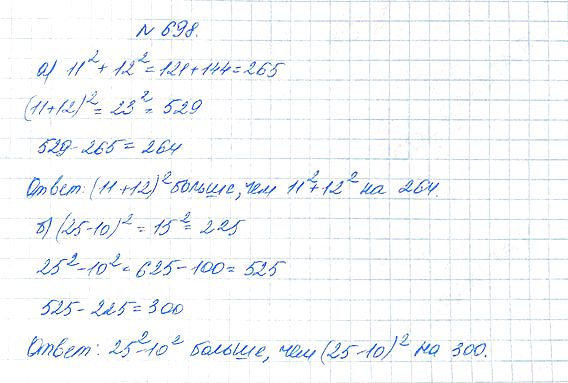 № 698.
а) 11² + 12² = 121 + 144 = 265
(11+12)² = 23² = 529
529 - 265 = 264
Ответ: (11+12)² больше, чем 11² + 12² на 264.
б) (25-10)² = 15² = 225
25² - 10² = 625 - 100 = 525
525 - 225 = 300
Ответ: 25² - 10² больше, чем (25-10)² на 300.